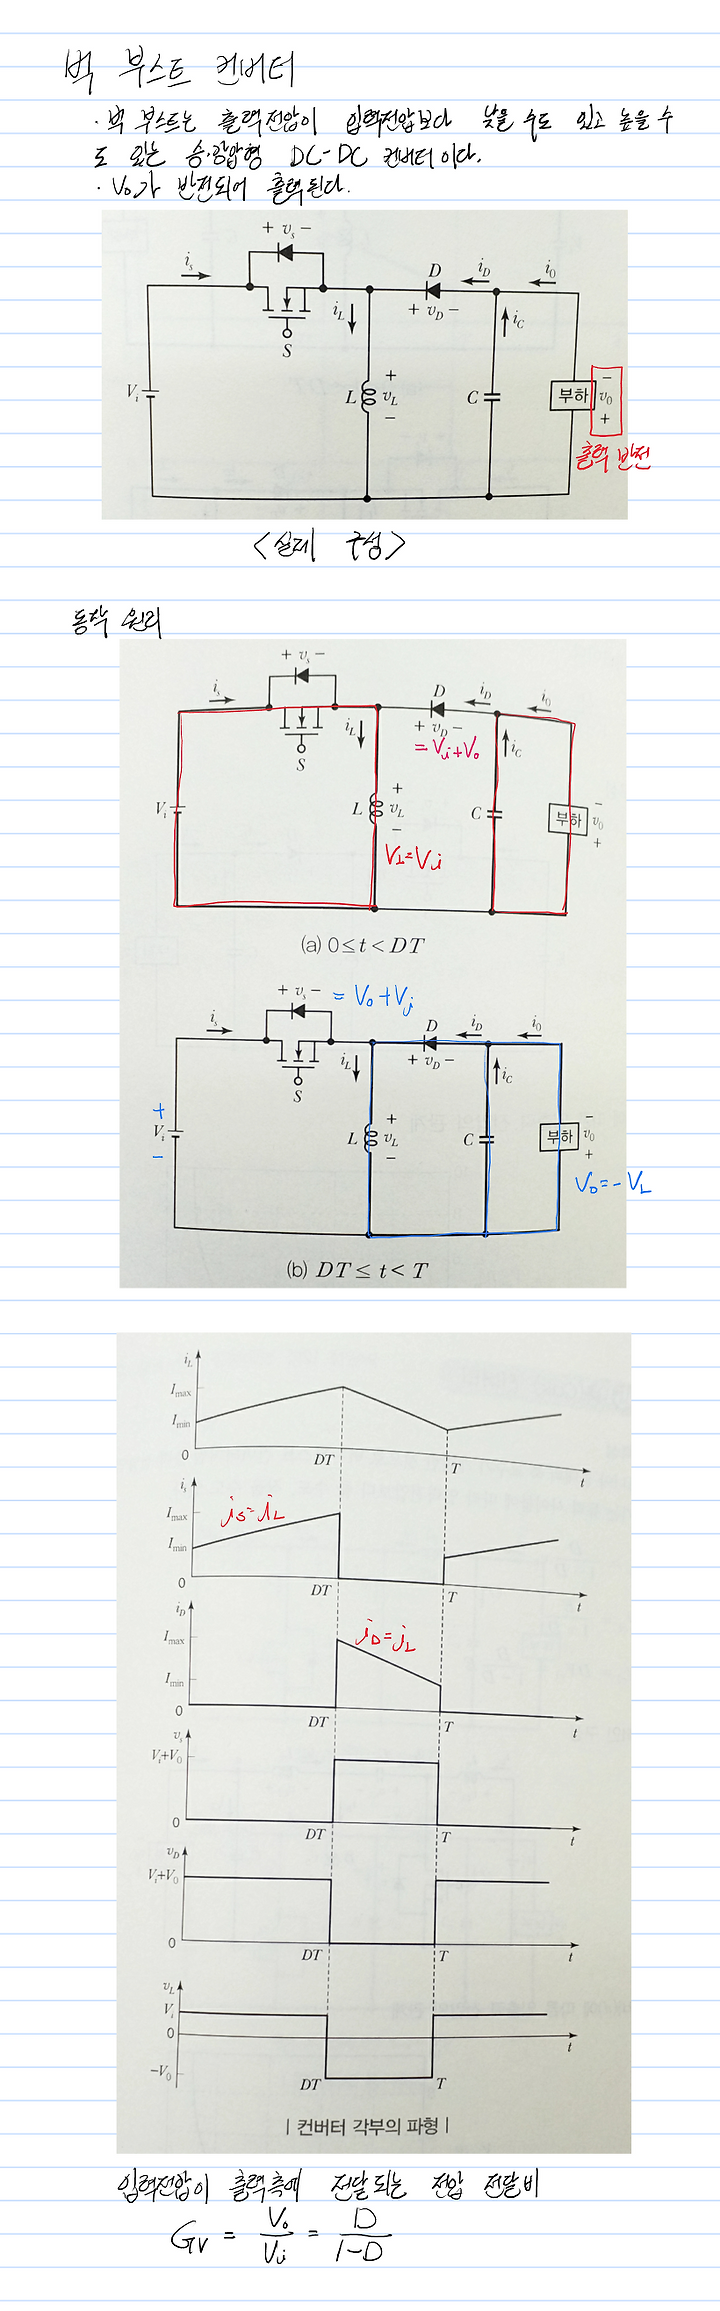 벅 부스트 컨버터
· 벅 부스트는 출력전압이 입력전압보다 낮을 수도 있고 높을 수
도 있는 승·강압형 DC-DC 컨버터이다.
· Vo가 반전되어 출력된다.
+ vs −
is
D
iD
i0
iL
+ vD −
iC
S
Vi
L
+
vL
−
C
부하
−
v0
+
출력 반전
<실제 구성>
동작 원리
+ vs −
is
D
iD
i0
iL
+ vD −
= Vi+Vo
iC
S
Vi
L
+
vL
−
C
부하
−
v0
+
VL=Vi
(a) 0≤t<DT
+ vs − = Vo+Vi
is
D
iD
i0
iL
+ vD −
iC
S
+
Vi
−
L
+
vL
−
C
부하
−
v0
+
Vo=-VL
(b) DT≤t<T
iL
Imax
Imin
0
DT
T
t
is
Imax
is=iL
Imin
0
DT
T
t
iD
Imax
iD=iL
Imin
0
DT
T
t
vs
Vi+V0
0
DT
T
t
vD
Vi+V0
0
DT
T
t
vL
Vi
0
t
−V0
DT
T
| 컨버터 각부의 파형 |
입력전압이 출력측에 전달되는 전압 전달비
Gv = Vo/Vi = D/1-D